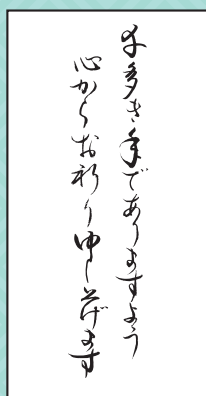 幸多き年でありますよう
心からお祈り申し上げます